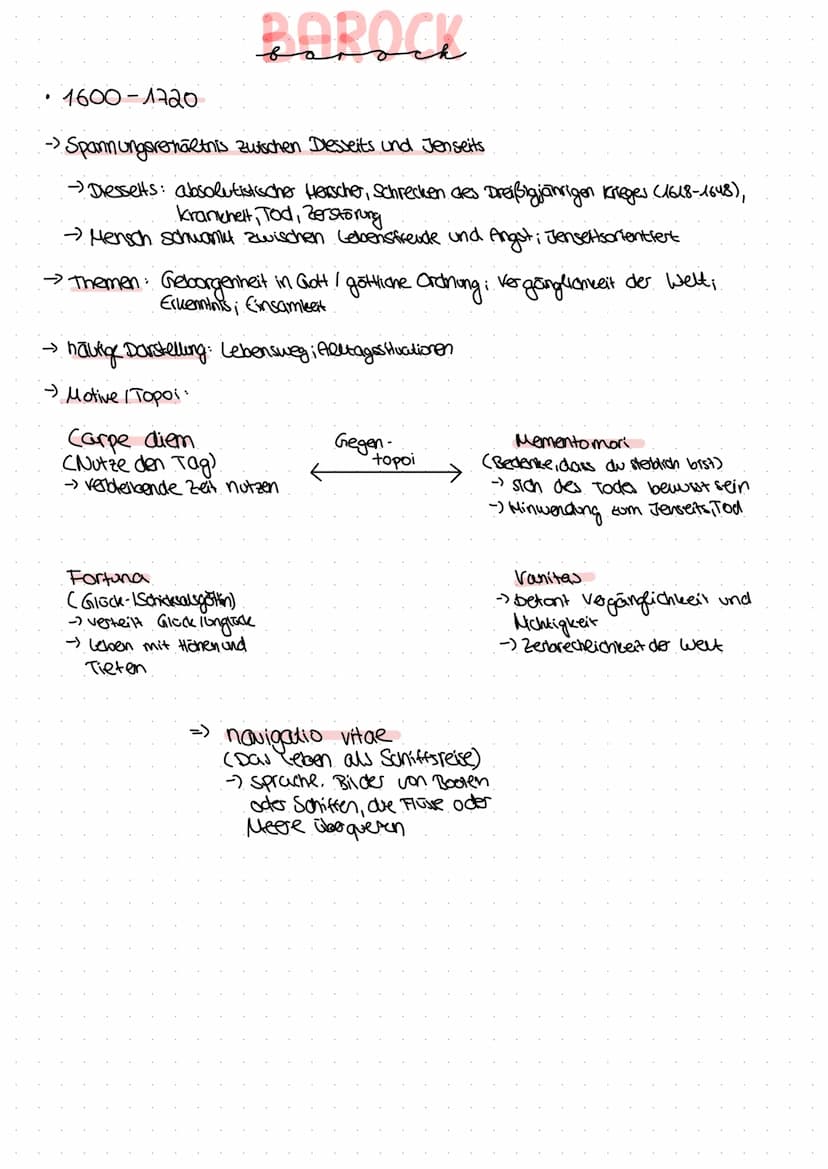 BAROCK
barock
• 1600-1720
-> Spannungsverhältnis zwischen Diesseits und Jenseits
-> Diesseits: absolutistischer Herscher, Schrecken des Dreißigjährigen Krieges (1618-1648),
Krankheit, Tod, Zerstörung
-> Mensch schwankt zwischen Lebensfreude und Angst; Jenseitsorientiert
-> Themen: Geborgenheit in Gott / göttliche Ordnung; Vergänglichkeit der Welt;
Erkenntnis; Einsamkeit
-> häufige Darstellung: Lebensweg; Alltagssituationen
-> Motive / Topoi:
Carpe diem
(Nutze den Tag)
-> verbleibende Zeit nutzen
Gegen-
topoi
Memento mori
(Bedenke, dass du sterblich bist)
-> sich des Todes bewusst sein
-> Hinwendung zum Jenseits, Tod
Fortuna
(Glück-/Schicksalsgöttin)
-> verteilt Glück/Unglück
-> Leben mit Höhen und
Tiefen
Vanitas
-> betont Vergänglichkeit und
Nichtigkeit
-> Zerbrechlichkeit der Welt
=> navigatio vitae
(Das Leben als Schiffsreise)
-> sprachl. Bilder von Booten
oder Schiffen, die Flüsse oder
Meere überqueren